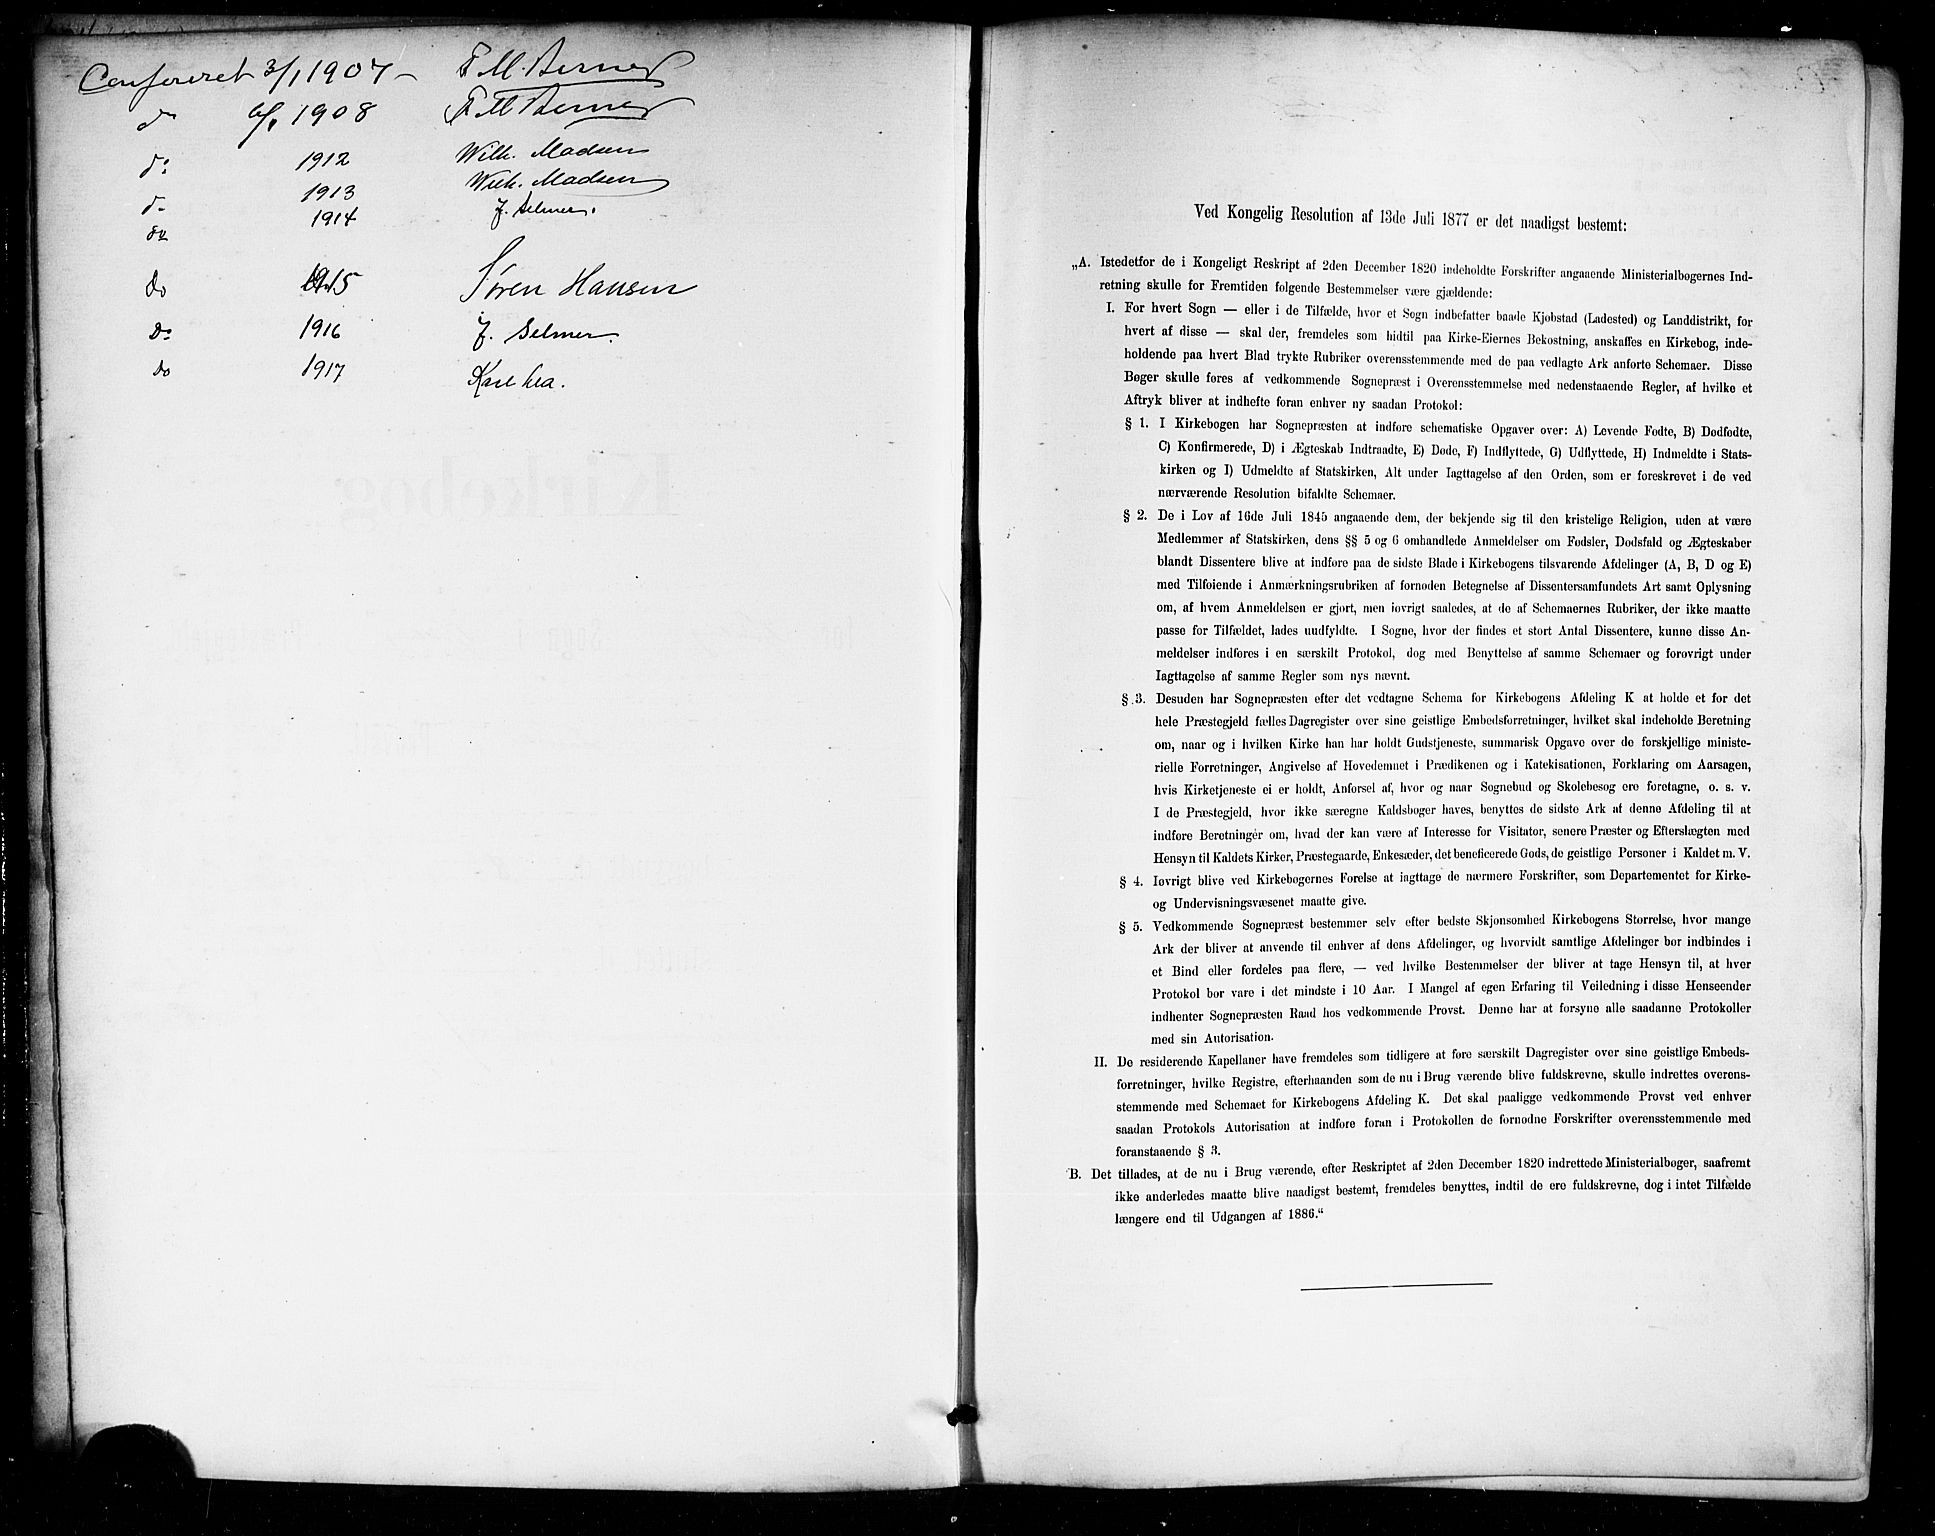 Confereret 3/1 1907 – F. M. Berner
do 6/1 1908 F M Berner
do: 1912 Wilh. Madsen
do 1913 Wilh. Madsen
do 1914 J. Selmer.
Do 1915 Søren Hansen
Do 1916 J. Selmer.
Do 1917 Karl Lea.
Kirkebog
Sogn
Ved Kongelig Resolution af 13de Juli 1877 er det naadigst bestemt:
„A. Istedetfor de i Kongeligt Reskript af 2den December 1820 indeholdte Forskrifter angaaende Ministerialbøgernes Ind-
retning skulle for Fremtiden følgende Bestemmelser være gjældende:
I. For hvert Sogn — eller i de Tilfælde, hvor et Sogn indbefatter baade Kjøbstad (Ladested) og Landdistrikt, for
hvert af disse — skal der, fremdeles som hidtil paa Kirke-Eiernes Bekostning, anskaffes en Kirkebog, inde-
holdende paa hvert Blad trykte Rubriker overensstemmende med de paa vedlagte Ark anførte Schemaer. Disse
Bøger skulle føres af vedkommende Sognepræst i Overensstemmelse med nedenstaaende Regler, af hvilke et
Aftryk bliver at indhefte foran enhver ny saadan Protokol:
§ 1. I Kirkebogen har Sognepræsten at indføre schematiske Opgaver over: A) Levende Fødte, B) Dødfødte,
C) Konfirmerede, D) i Ægteskab Indtraadte, E) Døde, F) Indflyttede, G) Udflyttede, H) Indmeldte i Stats-
kirken og I) Udmeldte af Statskirken, Alt under Iagttagelse af den Orden, som er foreskrevet i de ved
nærværende Resolution bifaldte Schemaer.
§ 2. De i Lov af 16de Juli 1845 angaaende dem, der bekjende sig til den kristelige Religion, uden at være
Medlemmer af Statskirken, dens §§ 5 og 6 omhandlede Anmeldelser om Fødsler, Dødsfald og Ægteskaber
blandt Dissentere blive at indføre paa de sidste Blade i Kirkebogens tilsvarende Afdelinger (A, B, D og E)
med Tilføiende i Anmærkningsrubriken af fornøden Betegnelse af Dissentersamfundets Art samt Oplysning
om, af hvem Anmeldelsen er gjort, men iøvrigt saaledes, at de af Schemaernes Rubriker, der ikke maatte
passe for Tilfældet, lades uudfyldte. I Sogne, hvor der findes et stort Antal Dissentere, kunne disse An-
meldelser indføres i en særskilt Protokol, dog med Benyttelse af samme Schemaer og forøvrigt under
Iagttagelse af samme Regler som nys nævnt.
§ 3. Desuden har Sognepræsten efter det vedtagne Schema for Kirkebogens Afdeling K at holde et for det
hele Præstegjeld fælles Dagregister over sine geistlige Embedsforretninger, hvilket skal indeholde Beretning
om, naar og i hvilken Kirke han har holdt Gudstjeneste, summarisk Opgave over de forskjellige ministe-
rielle Forretninger, Angivelse af Hovedemnet i Prædikenen og i Katekisationen, Forklaring om Aarsagen,
hvis Kirketjeneste ei er holdt, Anførsel af, hvor og naar Sognebud og Skolebesøg ere foretagne, o. s. v.
I de Præstegjeld, hvor ikke særegne Kaldsbøger haves, benyttes de sidste Ark af denne Afdeling til at
indføre Beretninger om, hvad der kan være af Interesse for Visitator, senere Præster og Efterslægten med
Hensyn til Kaldets Kirker, Præstegaarde, Enkesæder, det beneficerede Gods, de geistlige Personer i Kaldet m. V.
§ 4. Iøvrigt blive ved Kirkebøgernes Førelse at iagttage de nærmere Forskrifter, som Departementet for Kirke-
og Undervisningsvæsenet maatte give.
§ 5. Vedkommende Sognepræst bestemmer selv efter bedste Skjønsomhed Kirkebogens Størrelse, hvor mange
Ark der bliver at anvende til enhver af dens Afdelinger, og hvorvidt samtlige Afdelinger bør indbindes i
et Bind eller fordeles paa flere, — ved hvilke Bestemmelser der bliver at tage Hensyn til, at hver
Protokol bør vare i det mindste i 10 Aar. I Mangel af egen Erfaring til Veiledning i disse Henseender
indhenter Sognepræsten Raad hos vedkommende Provst. Denne har at forsyne alle saadanne Protokoller
med sin Autorisation.
II. De residerende Kapellaner have fremdeles som tidligere at føre særskilt Dagregister over sine geistlige Embeds-
forretninger, hvilke Registre, efterhaanden som de nu i Brug værende blive fuldskrevne, skulle indrettes overens-
stemmende med Schemaet for Kirkebogens Afdeling K. Det skal paaligge vedkommende Provst ved enhver
saadan Protokols Autorisation at indføre foran i Protokollen de fornødne Forskrifter overensstemmende med
foranstaaende § 3.
B. Det tillades, at de nu i Brug værende, efter Reskriptet af 2den December 1820 indrettede Ministerialbøger, saafremt
ikke anderledes maatte blive naadigst bestemt, fremdeles benyttes, indtil de ere fuldskrevne, dog i intet Tilfælde
længere end til Udgangen af 1886.“